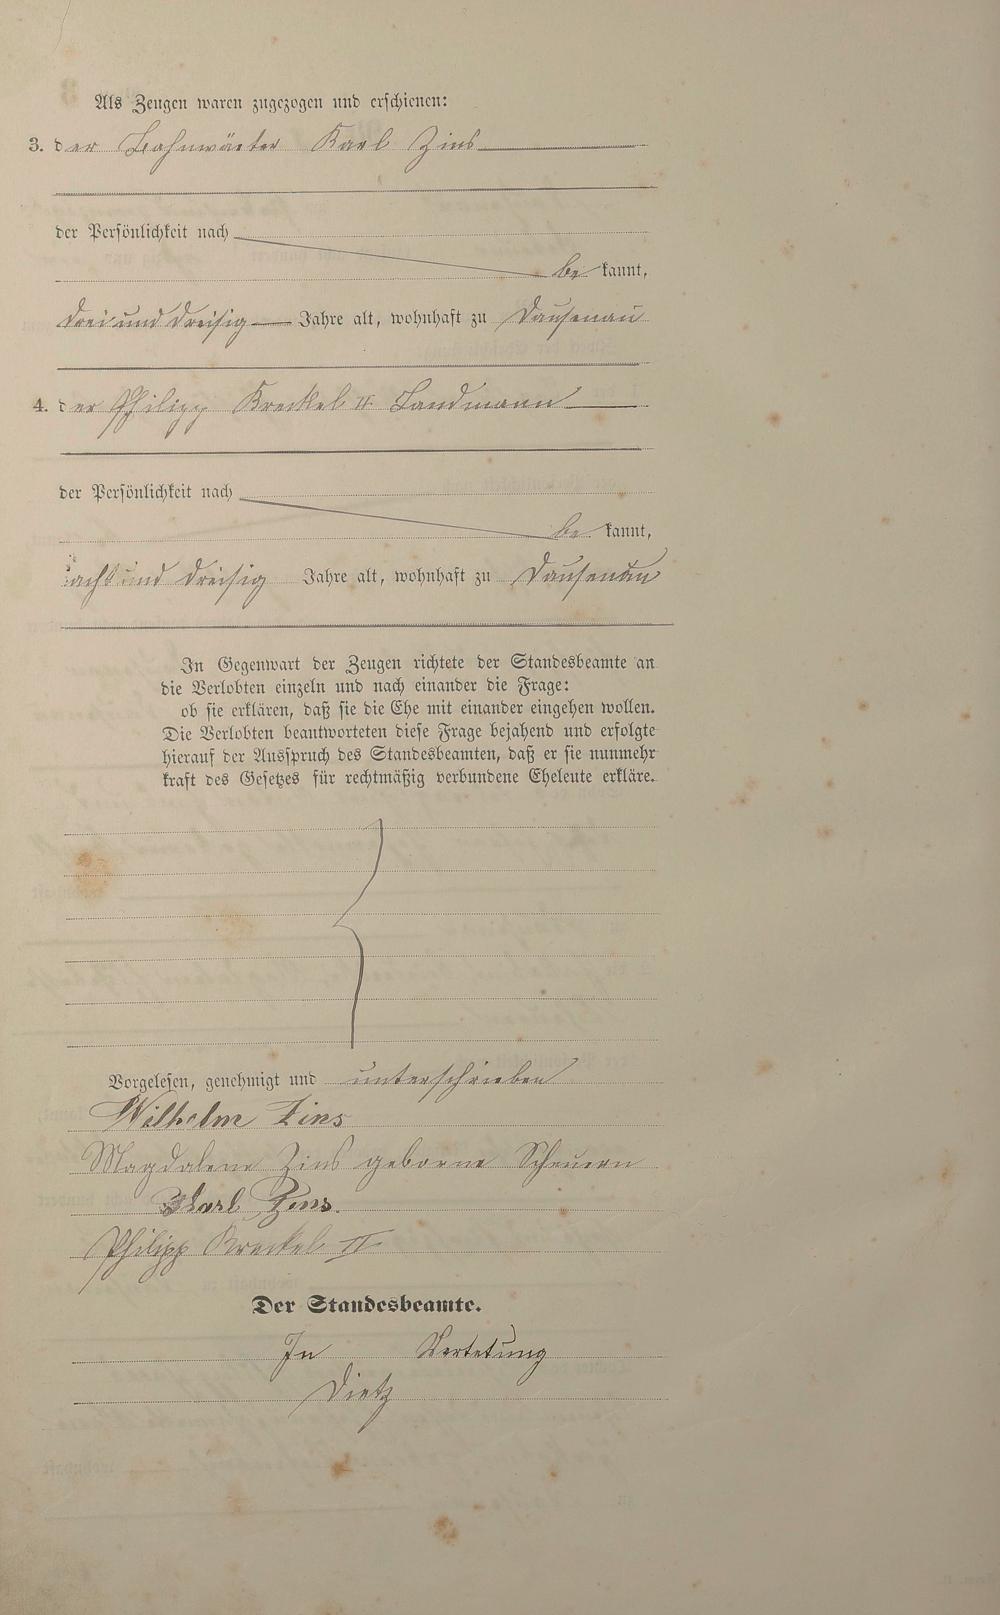 Als Zeugen waren zugezogen und erschienen:
3. der Bahnwärter Karl Zins
der Persönlichkeit nach
be kannt,
drei und dreisig Jahre alt, wohnhaft zu Dausenau
4. der Philipp Kreckel II. Landmann
der Persönlichkeit nach
be kannt,
acht und dreisig Jahre alt, wohnhaft zu Dausenau
In Gegenwart der Zeugen richtete der Standesbeamte an
die Verlobten einzeln und nach einander die Frage:
ob sie erklären, daß sie die Ehe mit einander eingehen wollen.
Die Verlobten beantworteten diese Frage bejahend und erfolgte
hierauf der Ausspruch des Standesbeamten, daß er sie nunmehr
kraft des Gesetzes für rechtmäßig verbundene Eheleute erkläre.
Vorgelesen, genehmigt und unterschrieben
Wilhelm Zins
Magdalene Zins geborne Scheuern
Karl Zins.
Philipp Kreckel II
Der Standesbeamte.
In Vertetung
Dietz